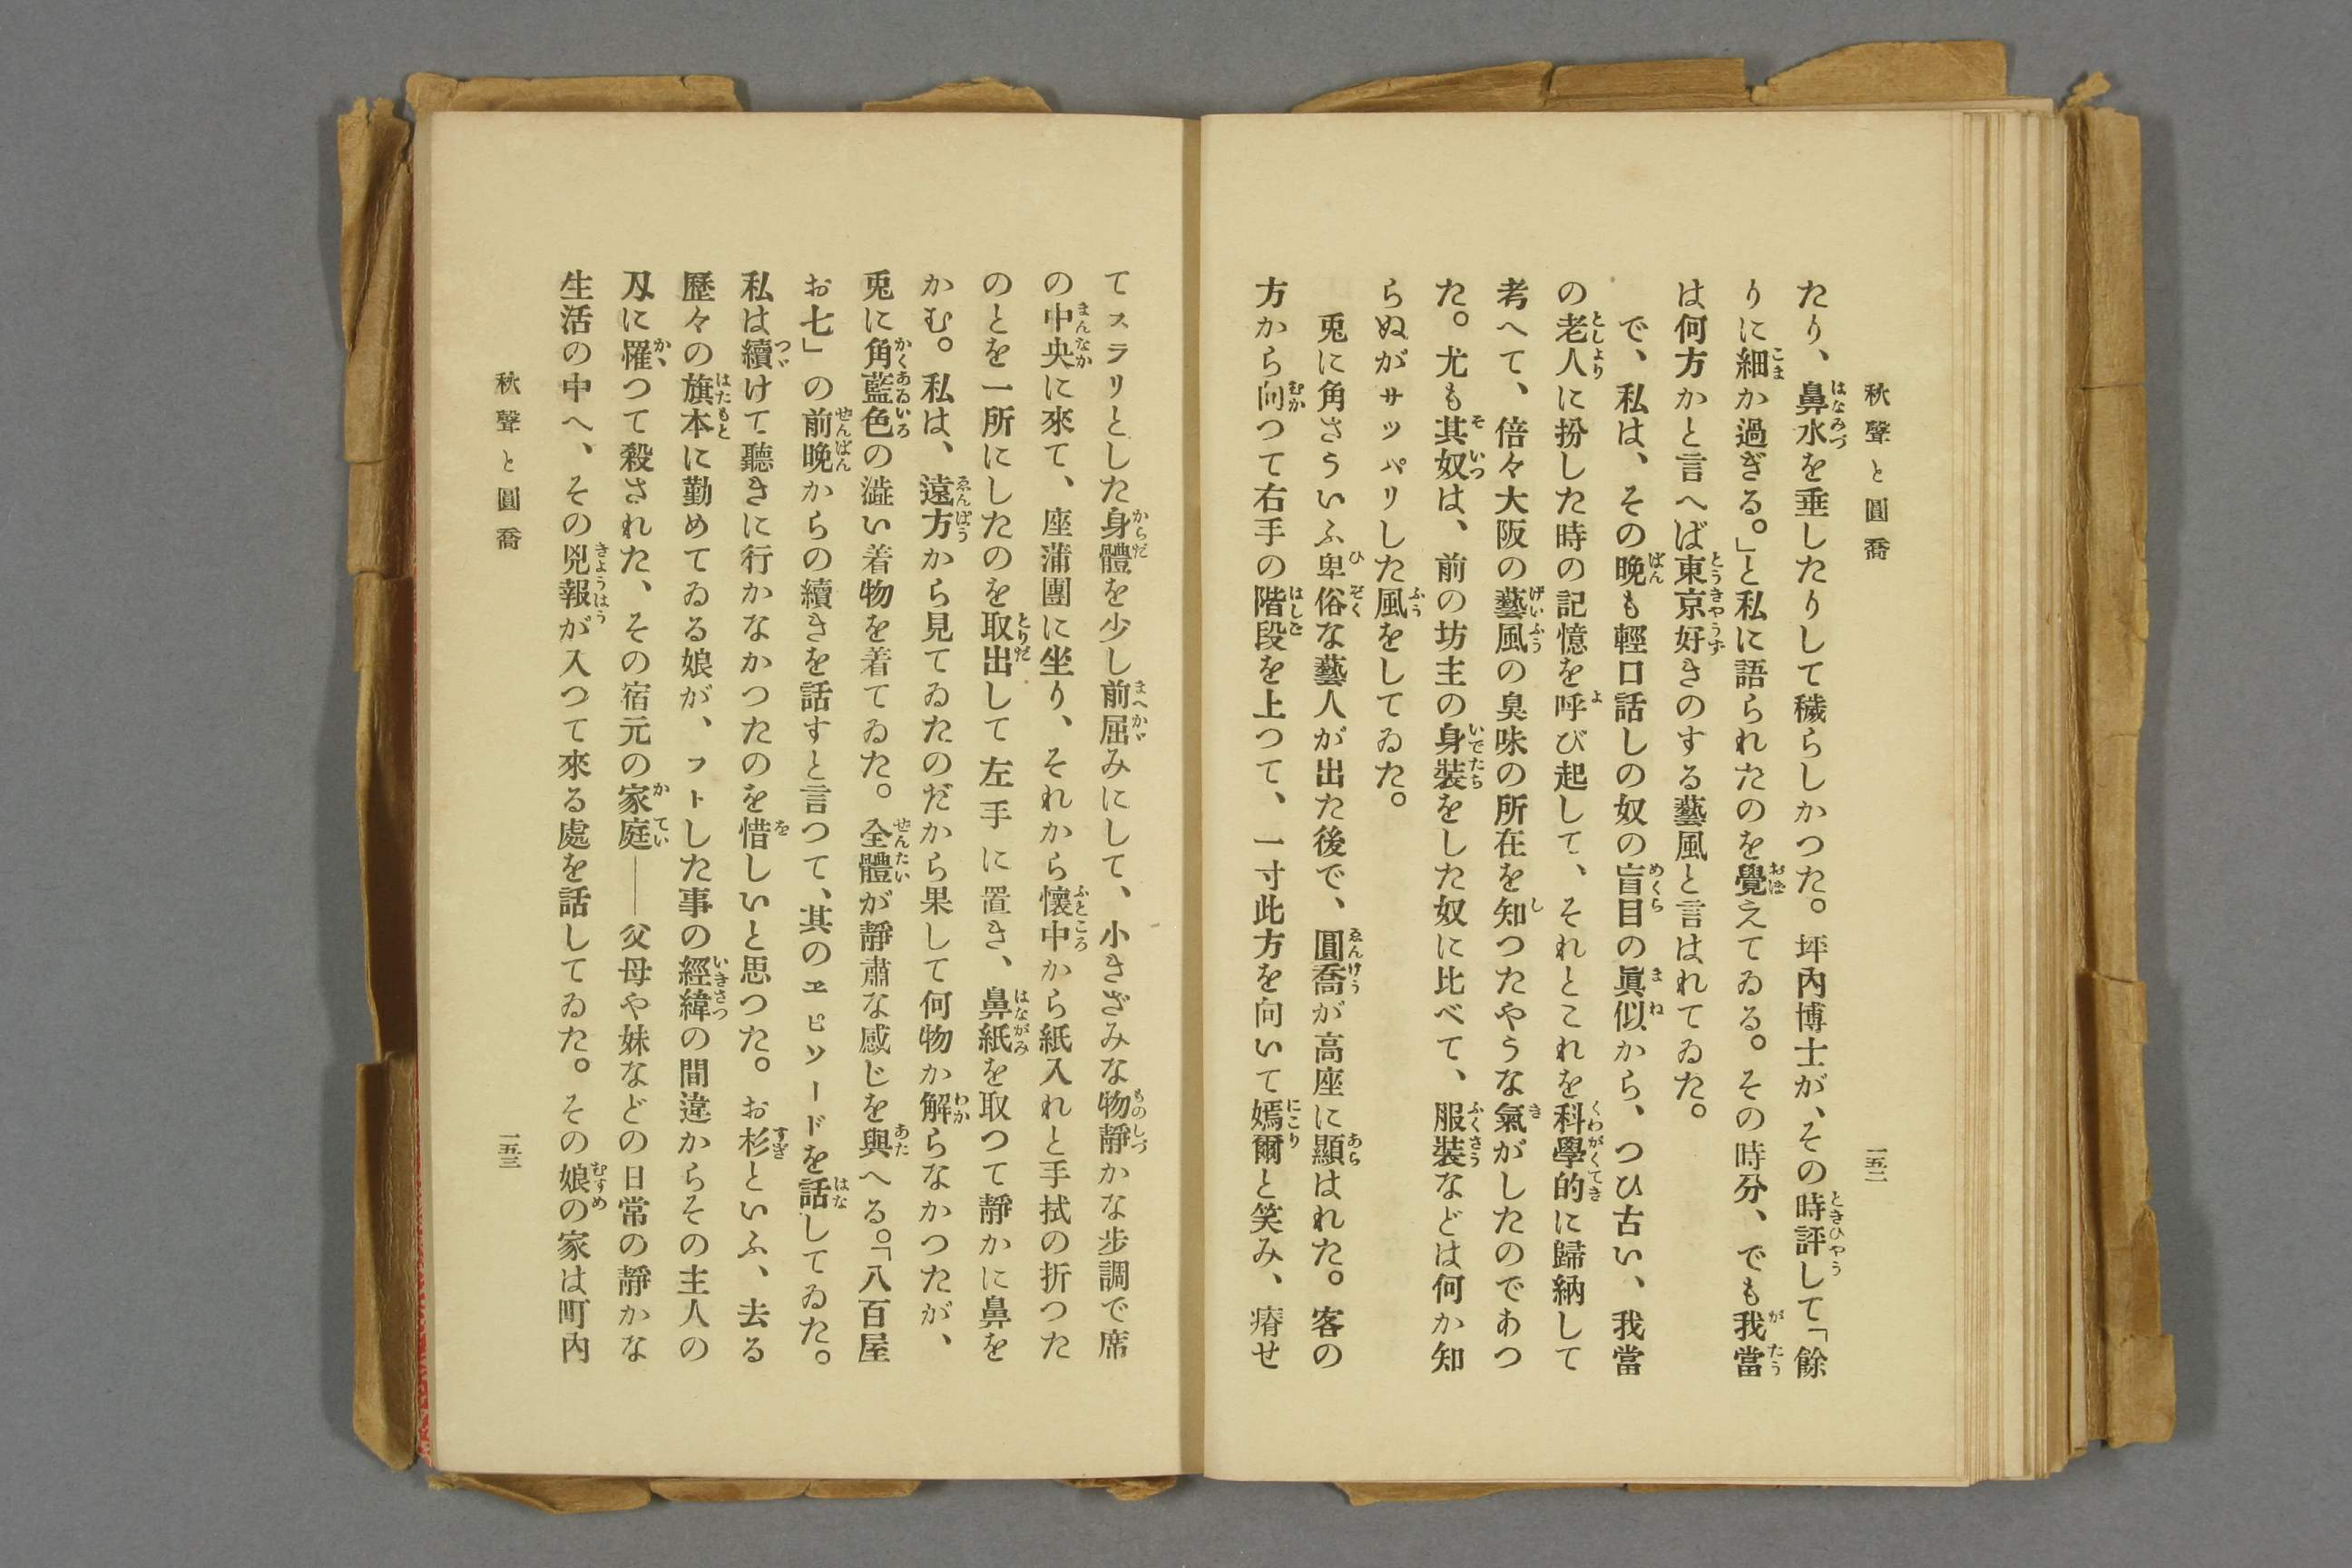 秋聲と圓喬
一五二
たり、鼻水を垂したりして穢らしかつた。坪內博士が、その時評して「餘
りに細か過ぎる。」と私に語られたのを覺えてゐる。その時分、でも我當
は何方かと言へば東京好きのする藝風と言はれてゐた。
で、私は、その晩も輕口話しの奴の盲目の眞似から、つひ古い、我當
の老人に扮した時の記憶を呼び起して、それとこれを科學的に歸納して
考へて、倍々大阪の藝風の臭味の所在を知つたやうな氣がしたのであつ
た。尤も其奴は、前の坊主の身裝をした奴に比べて、服裝などは何か知
らぬがサッパリした風をしてゐた。
兎に角さういふ卑俗な藝人が出た後で、圓喬が高座に顯はれた。客の
方から向つて右手の階段を上つて、一寸此方を向いて嫣爾と笑み、瘠せ
てスラリとした身體を少し前屈みにして、小きざみな物靜かな步調で席
の中央に來て、座蒲團に坐り、それから懷中から紙入れと手拭の折つた
のとを一所にしたのを取出して左手に置き、鼻紙を取つて靜かに鼻を
かむ。私は、遠方から見てゐたのだから果して何物か解らなかつたが、
兎に角藍色の澁い着物を着てゐた。全體が靜肅な感じを與へる。「八百屋
お七」の前晩からの續きを話すと言つて、其のエピソードを話してゐた。
私は續けて聽きに行かなかつたのを惜しいと思つた。お杉といふ、去る
歷々の旗本に勤めてゐる娘が、フトした事の經緯の間違からその主人の
刄に罹つて殺された、その宿元の家庭――父母や妹などの日常の靜かな
生活の中へ、その兇報が入つて來る處を話してゐた。その娘の家は町內
秋聲と圓喬
一五三